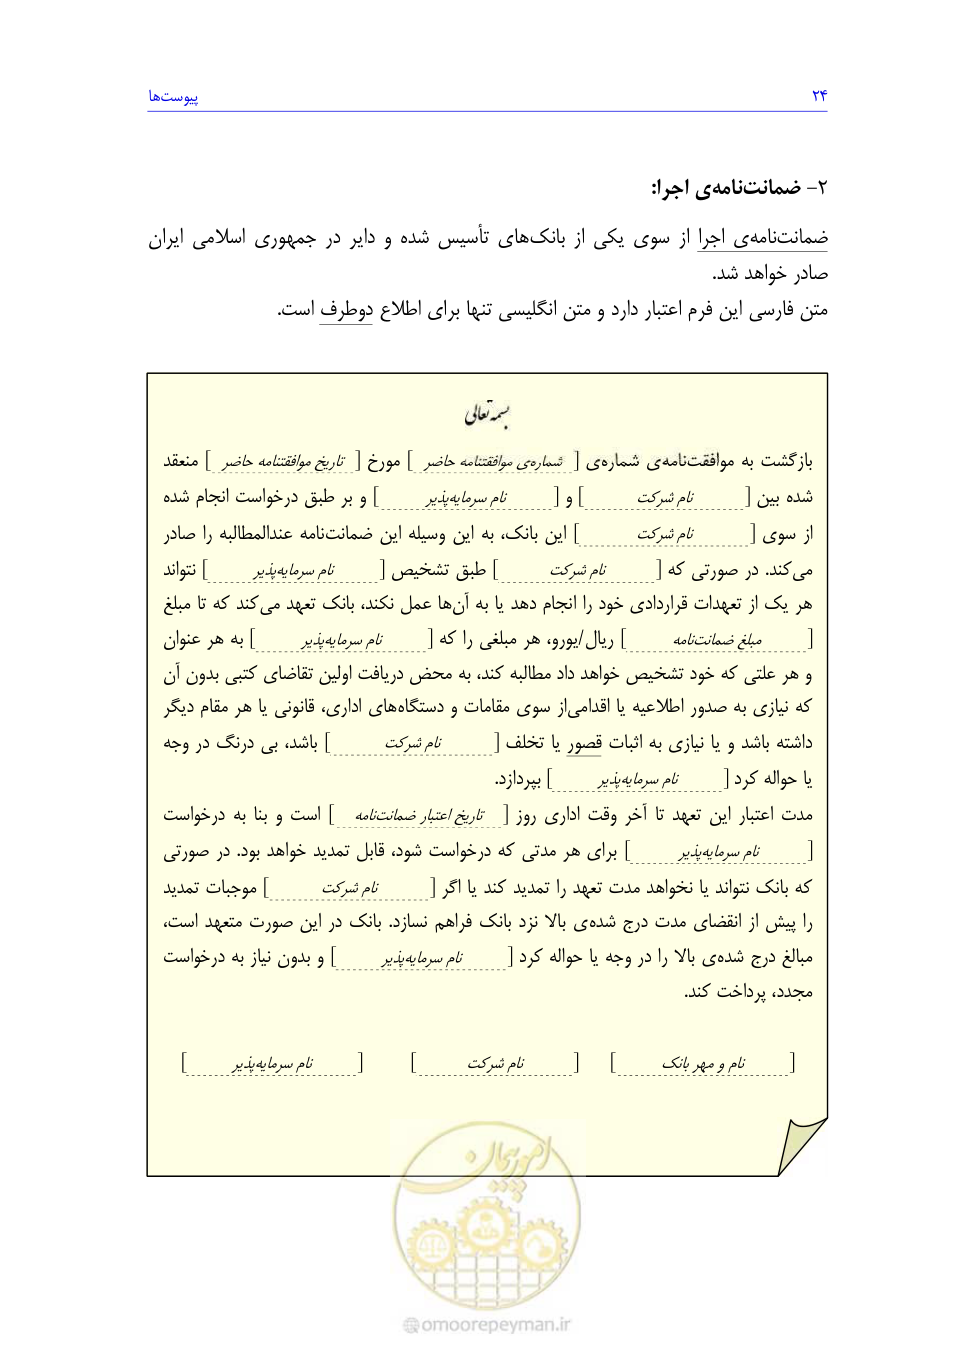 ۲۴
پیوست‌ها
۲- ضمانت‌نامه‌ی اجرا:
ضمانت‌نامه‌ی اجرا از سوی یکی از بانک‌های تأسیس شده و دایر در جمهوری اسلامی ایران
صادر خواهد شد.
متن فارسی این فرم اعتبار دارد و متن انگلیسی تنها برای اطلاع دوطرف است.
بسمه تعالی
بازگشت به موافقت‌نامه‌ی شماره‌ی [ شماره‌ی موافقتنامه حاضر ] مورخ [ تاریخ موافقتنامه حاضر ] منعقد
شده بین [ نام شرکت ] و [ نام سرمایه‌پذیر ] و بر طبق درخواست انجام شده
از سوی [ نام شرکت ] این بانک، به این وسیله این ضمانت‌نامه عندالمطالبه را صادر
می‌کند. در صورتی که [ نام شرکت ] طبق تشخیص [ نام سرمایه‌پذیر ] نتواند
هر یک از تعهدات قراردادی خود را انجام دهد یا به آن‌ها عمل نکند، بانک تعهد می‌کند که تا مبلغ
[ مبلغ ضمانت‌نامه ] ریال/یورو، هر مبلغی را که [ نام سرمایه‌پذیر ] به هر عنوان
و هر علتی که خود تشخیص خواهد داد مطالبه کند، به محض دریافت اولین تقاضای کتبی بدون آن
که نیازی به صدور اطلاعیه یا اقدامی‌از سوی مقامات و دستگاه‌های اداری، قانونی یا هر مقام دیگر
داشته باشد و یا نیازی به اثبات قصور یا تخلف [ نام شرکت ] باشد، بی درنگ در وجه
یا حواله کرد [ نام سرمایه‌پذیر ] بپردازد.
مدت اعتبار این تعهد تا آخر وقت اداری روز [ تاریخ اعتبار ضمانت‌نامه ] است و بنا به درخواست
[ نام سرمایه‌پذیر ] برای هر مدتی که درخواست شود، قابل تمدید خواهد بود. در صورتی
که بانک نتواند یا نخواهد مدت تعهد را تمدید کند یا اگر [ نام شرکت ] موجبات تمدید
را پیش از انقضای مدت درج شده‌ی بالا نزد بانک فراهم نسازد. بانک در این صورت متعهد است،
مبالغ درج شده‌ی بالا را در وجه یا حواله کرد [ نام سرمایه‌پذیر ] و بدون نیاز به درخواست
مجدد، پرداخت کند.
[ نام و مهر بانک ] [ نام شرکت ] [ نام سرمایه‌پذیر ]
امور پیمان
@omoorepeyman.ir